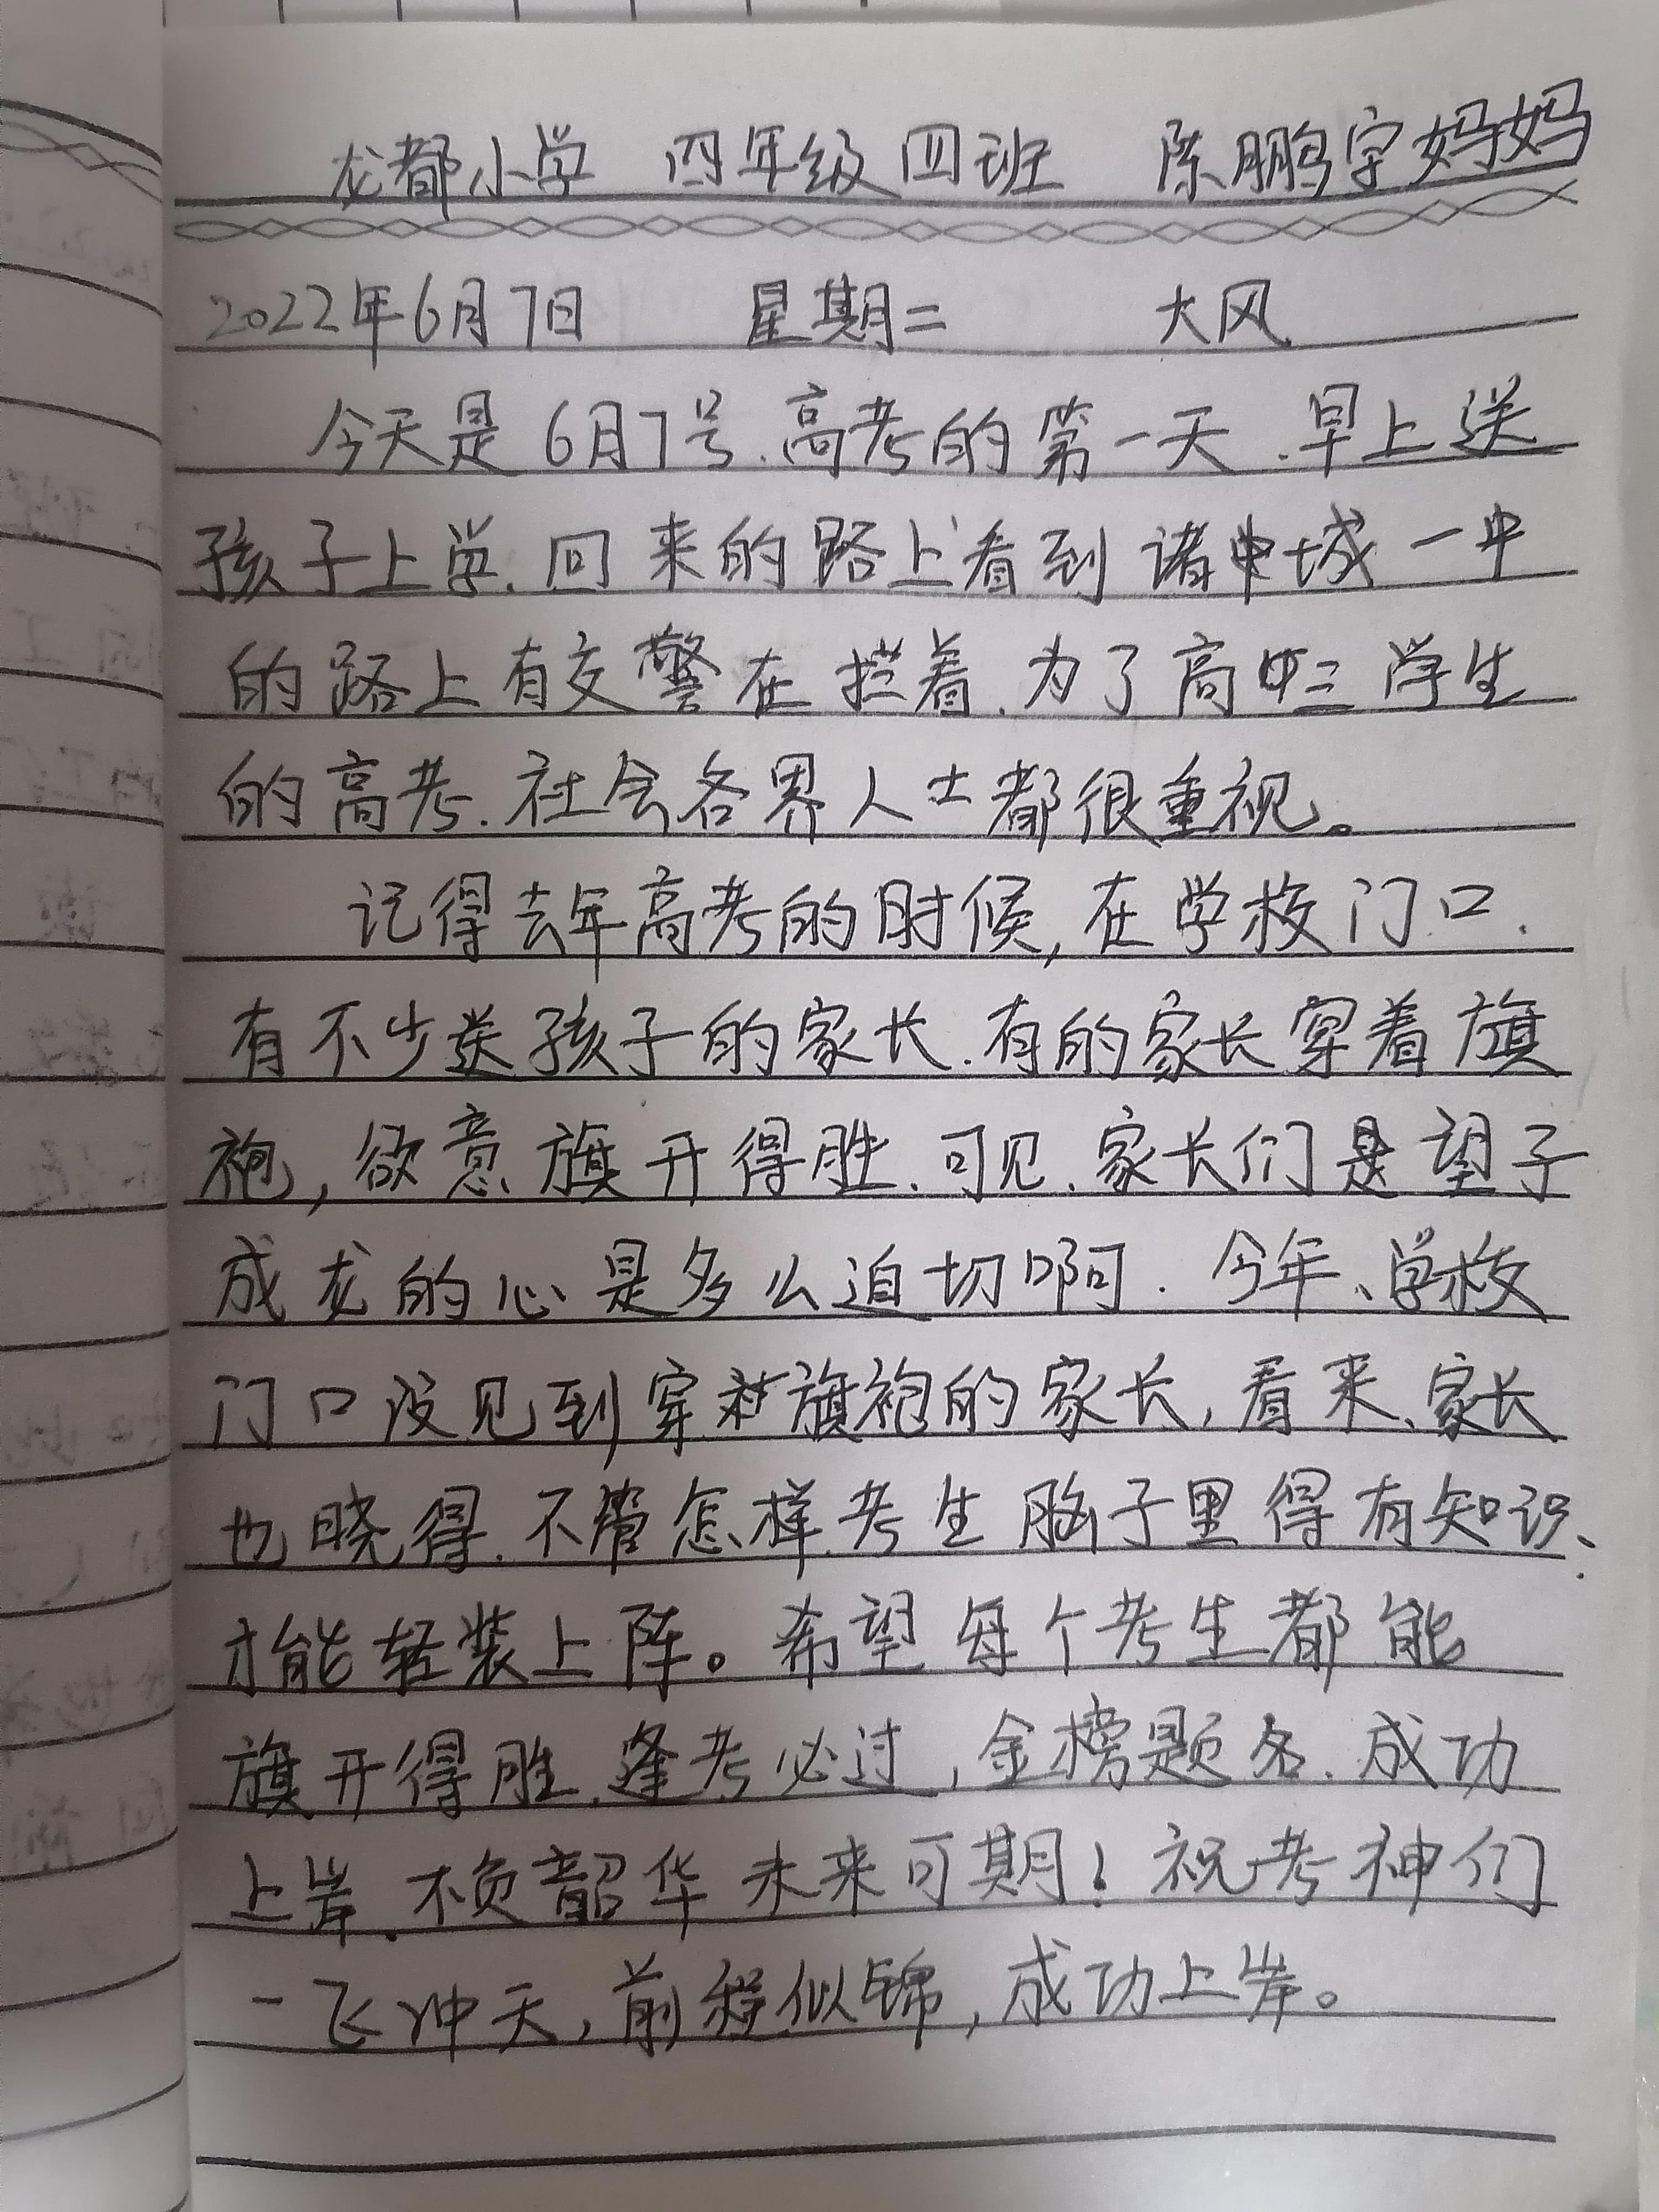 龙都小学 四年级四班 陈鹏宇妈妈
2022年6月7日 星期二 大风
今天是6月7号.高考的第一天.早上送
孩子上学.回来的路上看到诸城一中
的路上有交警在拦着.为了高三学生
的高考.社会各界人士都很重视。
记得去年高考的时候,在学校门口.
有不少送孩子的家长.有的家长穿着旗
袍,欲意旗开得胜.可见.家长们是望子
成龙的心是多么迫切啊.今年、学校
门口没见到穿旗袍的家长,看来、家长
也晓得.不管怎样.考生脑子里得有知识、
才能轻装上阵。希望每个考生都能
旗开得胜.逢考必过,金榜题名.成功
上岸.不负韶华 未来可期!祝考神们
一飞冲天,前程似锦,成功上岸。